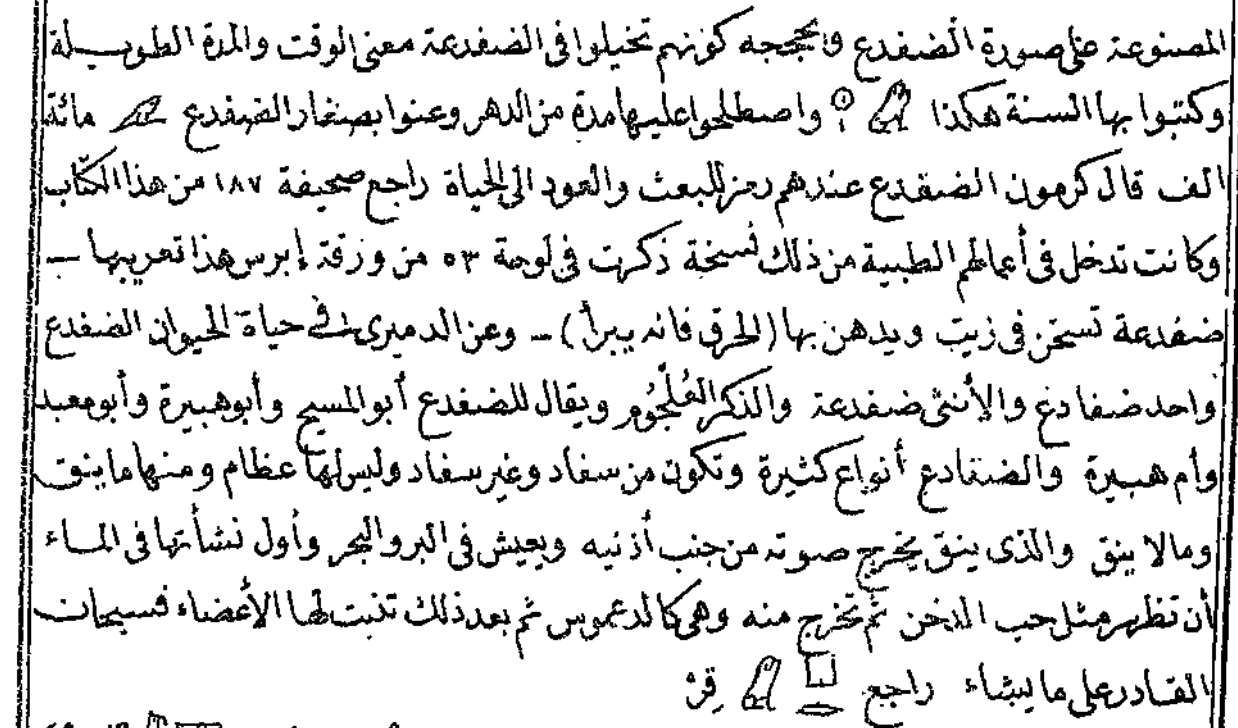 المصنوعة على صورة الضفدع وحجته كونهم تخيلوا فى الضفدعة معنى الوقت والمدة الطويـــلة
وكتبوا بها السنة هكذا واصطلحوا عليها مدة من الدهر وعنوا بصغار الضفدع مائة
الف قال كرمون الضفدع عندهم رمز للبعث والعود الى الحياة راجع صحيفة ١٨٧ من هذا الكتاب
وكانت تدخل فى أعمالهم الطبية من ذلك نسخة ذكرت فى لوحة ٥٣ من ورقة إبرس هذا تعريبها ــ
ضفدعة تسخن فى زيت ويدهن بها (الحرق فانه يبرأ) ــ وعن الدميرى فى حياة الحيوان الضفدع
واحد ضفادع والأنثى ضفدعة والذكر العُلْجُوم ويقال للضفدع أبو المسيح وأبو هبيرة وأبو معبد
وأم هبيرة والضفادع أنواع كثيرة وتكون من سفاد وغير سفاد وليس لها عظام ومنها ما ينق
وما لا ينق والذى ينق يخرج صوته من جنب أذنيه ويعيش فى البر والبحر وأول نشأتها فى المـاء
أن تظهر مثل حب الدخن ثم تخرج منه وهى كالدعموص ثم بعد ذلك تنبت لها الأعضاء فسبحان
القادر على ما يشاء راجع قِرْ